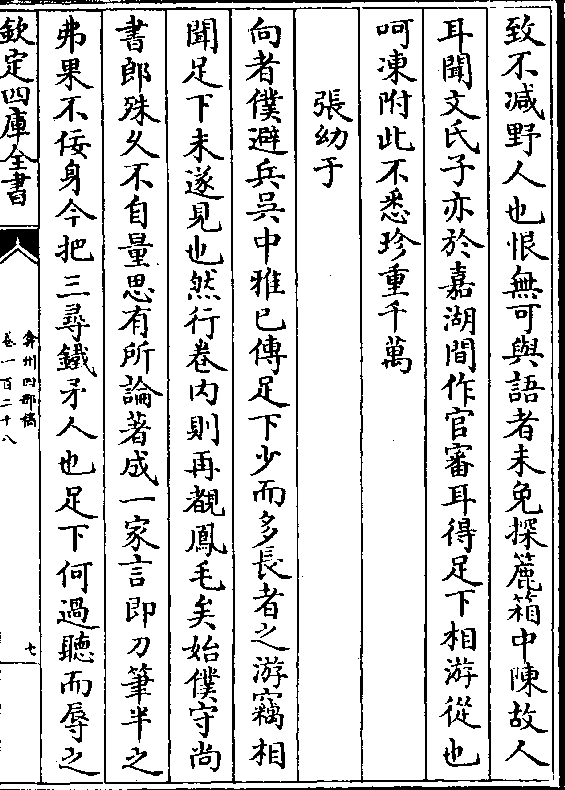 致不減野人也恨無可與語者未免探簏箱中陳故人
耳聞文氏子亦於嘉湖間作官審耳得足下相游從也
呵凍附此不悉珍重千萬
張幼于
向者僕避兵吳中雅已傳足下少而多長者之游竊相
聞足下未遂見也然行卷内則再覩鳳毛矣始僕守尚
書郎殊久不自量思有所論著成一家言即刀筆半之
弗果不佞身今把三尋鐵矛人也足下何過聽而辱之
欽定四庫全書
弇州四部稿
卷一百二十八
七